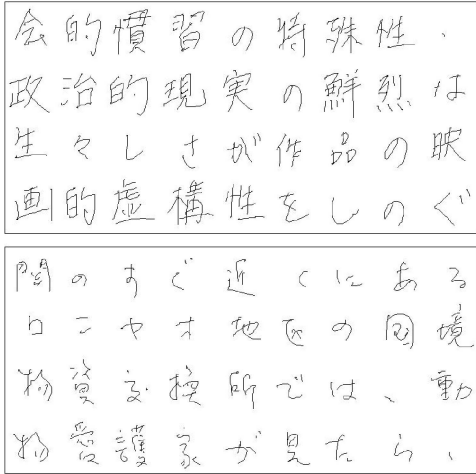 会的慣習の特殊性、
政治的現実の鮮烈は
生々しさが作品の映
画的虚構性をしのぐ
関のすぐ近くにある
ロンヤオ地区の国境
物資交換所では、動
物愛護家が見たら、